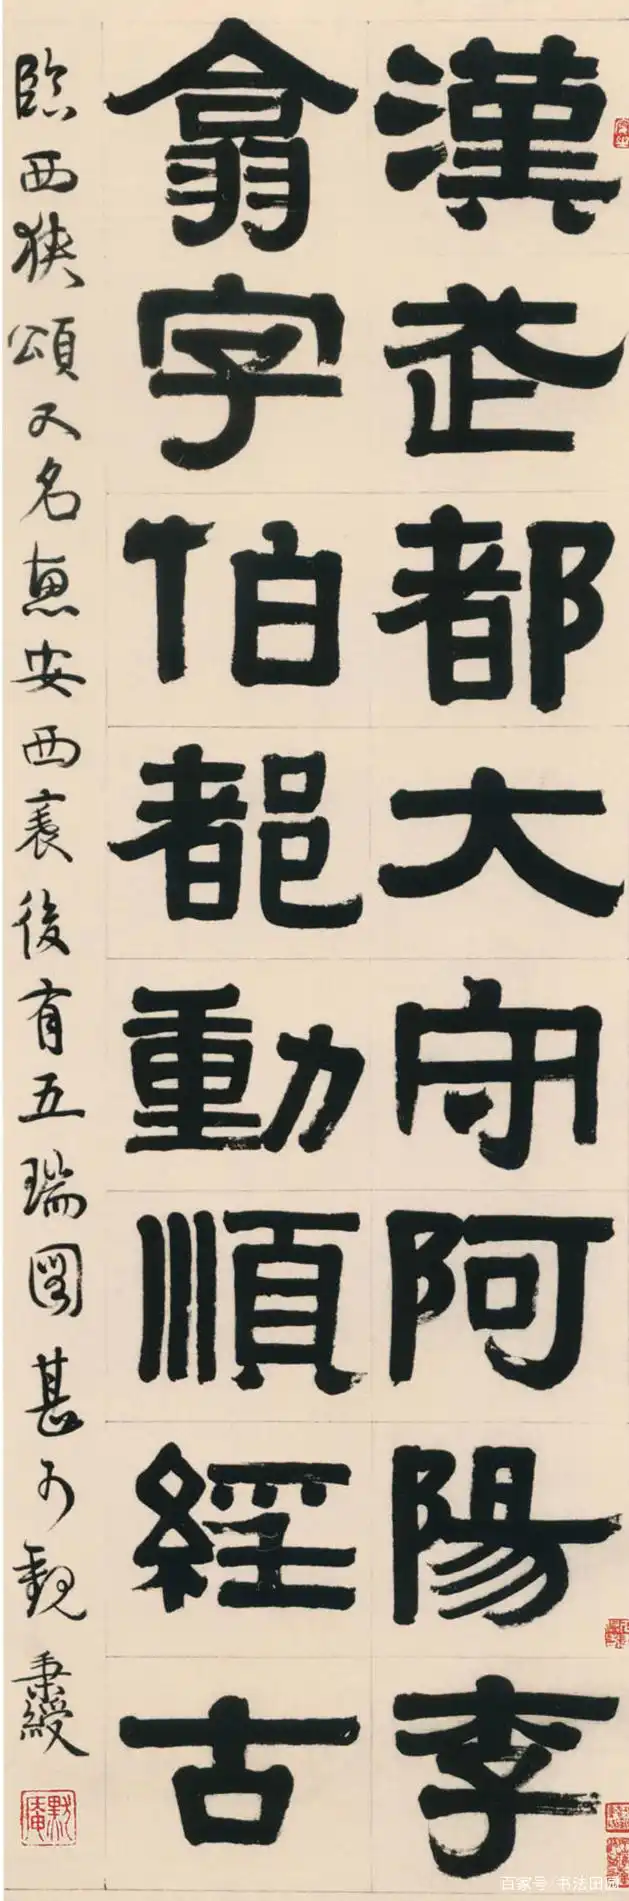 漢武都大守阿陽李
翕字伯都動順經古
臨西狹頌又名惠安西表後有五瑞圖甚可觀 秉綬
默庵
百家号/书法田园